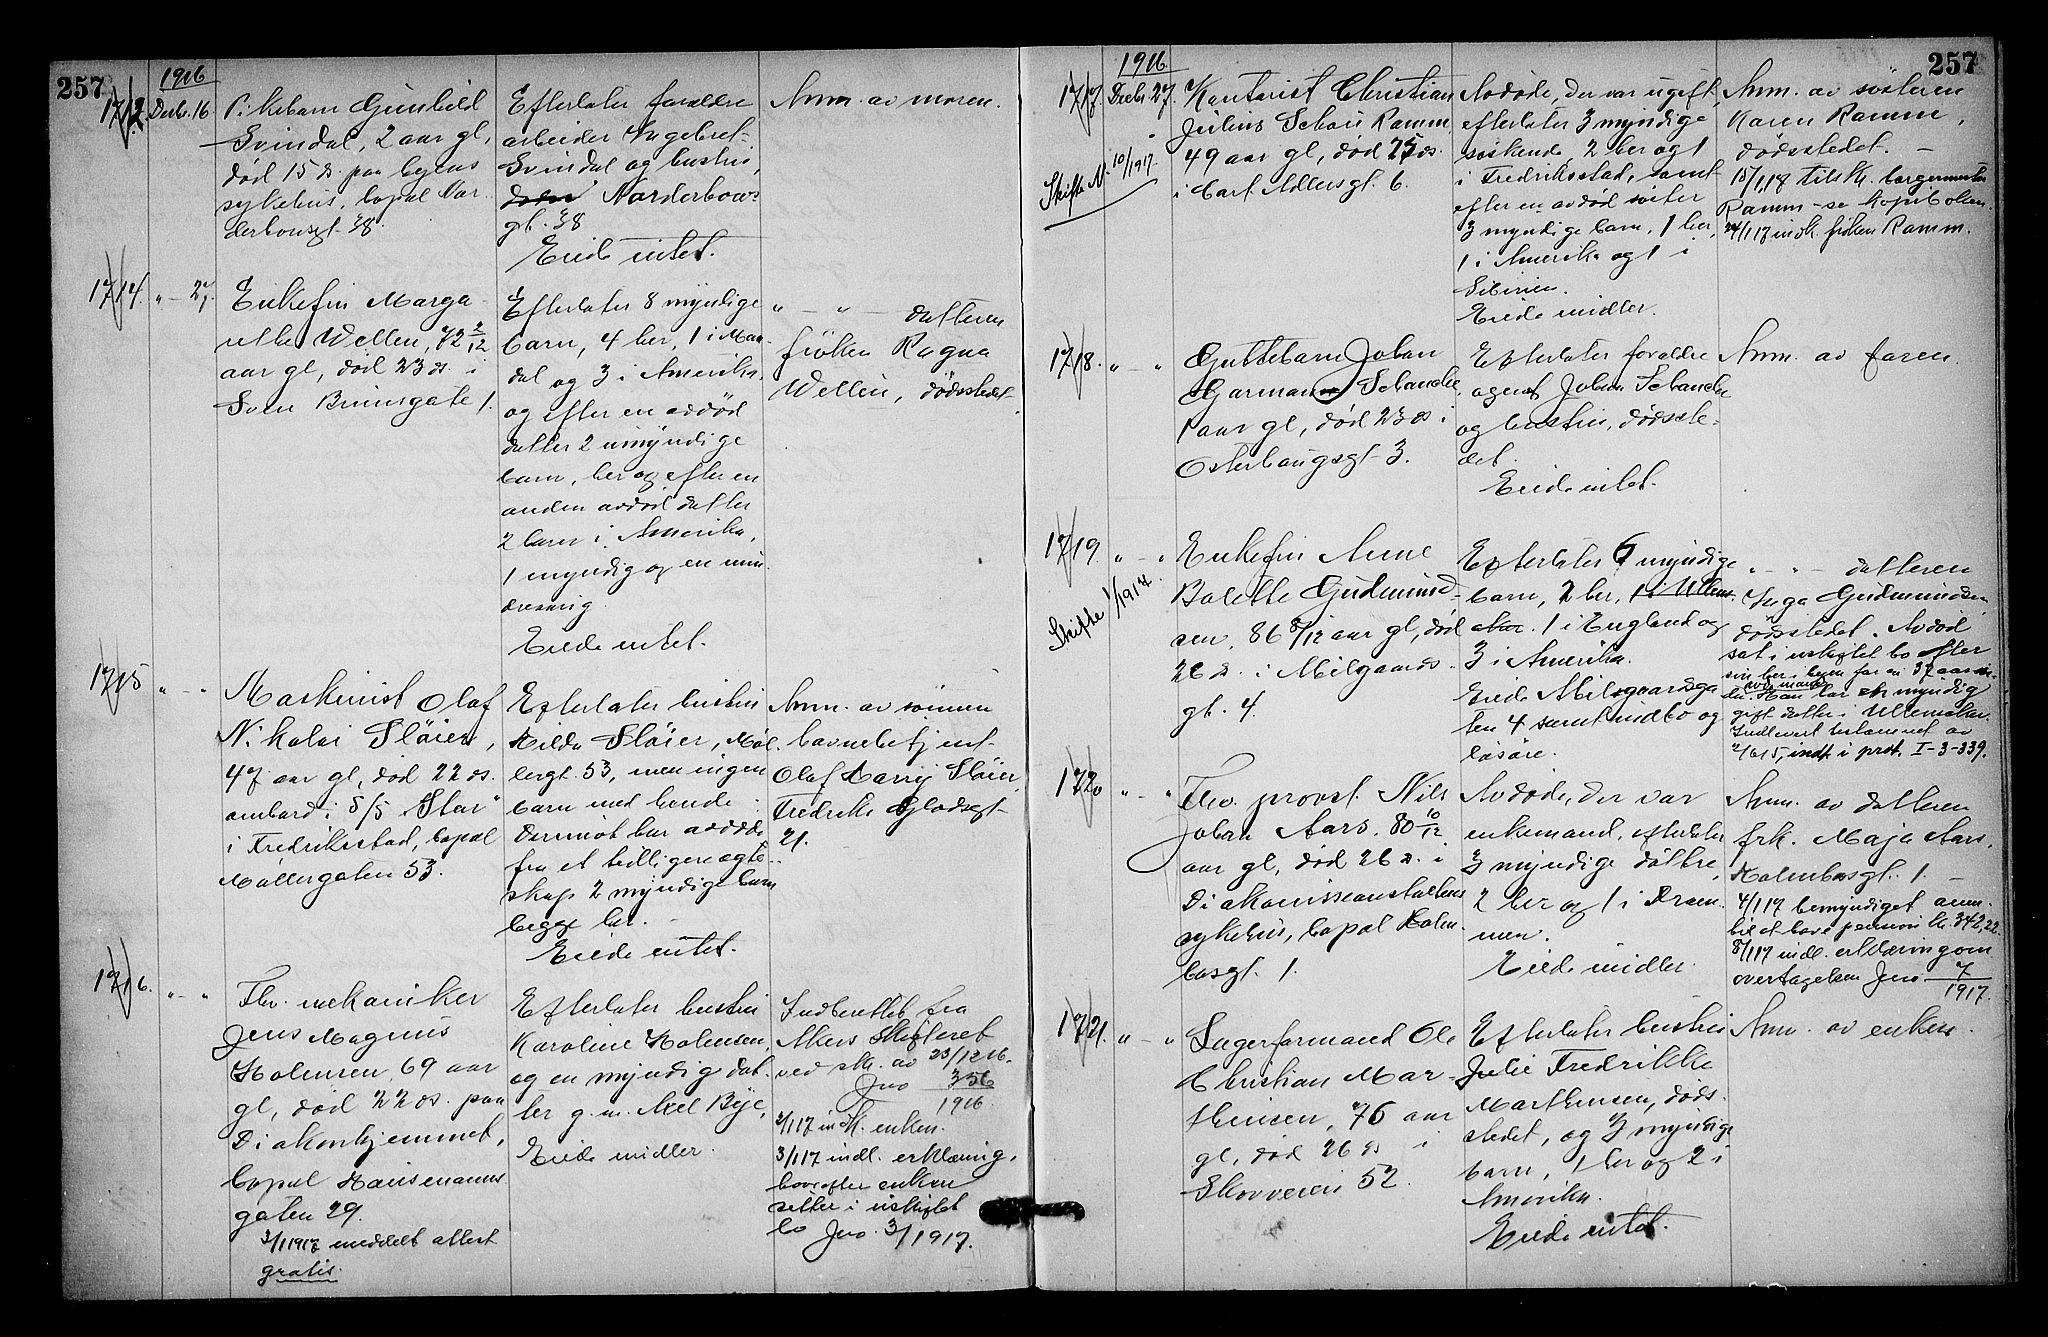 257
1916
1713 Decbr. 16
Pikebarn Gunhild
Svindal, 2 aar gl,
død 15 ds. paa byens
sykehus, bopal Nor
derhovsgt 38.
Efterlater forældre
arbeider Ingebret
Svindal og hustru,
Norderhovs
gt. 38
Eiede intet.
Anm. av moren.
1714. " - 27
Enkefru Marga
rethe Wellen, 72 2/12
aar gl, død 23 ds. i
Sven Brunsgate 1.
Efterlater 8 myndige
barn, 4 her, 1 i Man
dal og 3 i Amerika,
og efter en avdød
datter 2 umyndige
barn, her og efter en
anden avdød datter
2 barn i Amerika,
1 myndig og en min
dreaarig.
Eiede intet.
" - " - datteren
frøken Ragna
Wellen, dødsstedet.
1715 " - "
Maskinist Olaf
Nikolai Sløier,
47 aar gl, død 22 ds.
ombord i S/S "Star"
i Fredriksstad, bopal
Møllergaten 53.
Efterlater hustru
Hilda Sløier, Møl
lergt. 53, men ingen
barn med hende.
Derimot har avdøde
fra et tidligere ægte
skap 2 myndige barn
begge her.
Eiede intet.
Anm. av sønnen
havnebetjent
Olaf Harry Sløier,
Fredrik Glads gt
21.
1716. " - "
Fhv. mekaniker
Jens Magnus
Holmsen, 69 aar
gl, død 22 ds. paa
Diakonhjemmet,
bopal Hausmanns
gaten 29.
3/1 1917 meddelt attest
gratis.
Efterlater hustru
Karoline Holmsen,
og en myndig dat
ter g. m. Axel Bye,
Eiede midler.
Indberettet fra
Akers Skifteret
ved skr. av 23/12 16.
Jno 356
1916.
2/1 17 indk. enken.
3/1 17 indl. erklæring,
hvorefter enken
sitter i uskiftet
bo Jno. 3/1917.
257
1916.
1717. Decbr. 27.
Skifte N. 10/1917.
Kontorist Christian
Julius Schou Ramm
49 aar gl, død 25 ds.
i Carl Adlersgt. 6.
Avdøde, der var ugift,
efterlater 3 myndige
søskende, 2 her og 1
i Fredriksstad, samt
efter en avdød søster
3 myndige barn, 1 her,
1 i Amerika og 1 i
Sibirien.
Eiede midler.
Anm. av søsteren
Karen Ramm,
dødsstedet. -
15/1 18 tilsk. borgermester
Ramm - se kopiboken.
24/1 17 indk. frøken Ramm.
1718. " - "
Guttebarn Johan
Garmann Schanche
1 aar gl, død 23 ds i
Osterhaugsgt 3.
Efterlater forældre
agent Johan Schanche
og hustru, dødsste
det.
Eiede intet.
Anm. av faren.
1719. " - "
Skifte 1/1917.
Enkefru Anne
Bolette Gudmund
sen, 86 8/12 aar gl, død
26 ds. i Milgaards
gt. 4.
Efterlater 6 myndige
barn, 2 her, 1 i Ullens
aker. 1 i England og
3 i Amerika.
Eiede Milsgaardsga
ten 4 samt indbo og
løsøre.
" - " - datteren
Inga Gudmundsen
dødsstedet. Avdød
sat i uskiftet bo efter
for en 37 aar si
den. Han har en myndig
gift datter i Ullensaker.
Indlevert testamnet av
2/6 15, indt. i prot. I-3-339.
1720 " - "
Fhv. provst Nils
Johan Aars, 80 10/12
aar gl, død 26 ds. i
Diakonisseanstaltens
sykehus, bopal Holm
boesgt. 1.
Avdøde, der var
enkemand, efterlater
3 myndige døttre,
2 her og 1 i Dram
men.
Eiede midler.
Anm. av datteren
frk. Maja Aars,
Holmboesgt. 1. -
4/1 17 bemyndiget anm.
til at hæve pension kr. 342,22.
8/1 17 indl. erklæring om
overtagelsen Jno 7
1917.
1721. " - "
Lagerformand Ole
Christian Mar
thinsen, 76 aar
gl, død 26 ds i
Skovveien 52.
Efterlater hustru
Julie Fredrikke
Marthinsen, døds
stedet, og 3 myndige
barn, 1 her og 2 i
Amerika.
Eiede intet.
Anm. av enken.